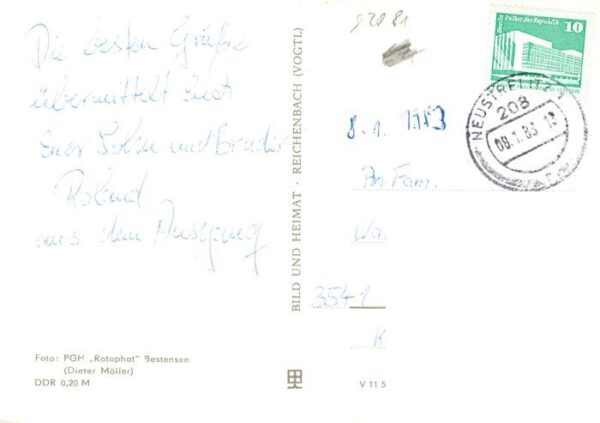 Die besten Grüße
übermittelt Euch
Euer Sohn und Bruder
Roland
aus dem Ausgang
Foto: PGH „Rotophot“ Bestensee
(Dieter Möller)
DDR 0,20 M
BILD UND HEIMAT · REICHENBACH (VOGTL)
V 11 5
Berlin Palast der Republik
10
NEUSTRELITZ 1
208
08.1.83
8.1.1983
An Fam.
Wa
3541
K